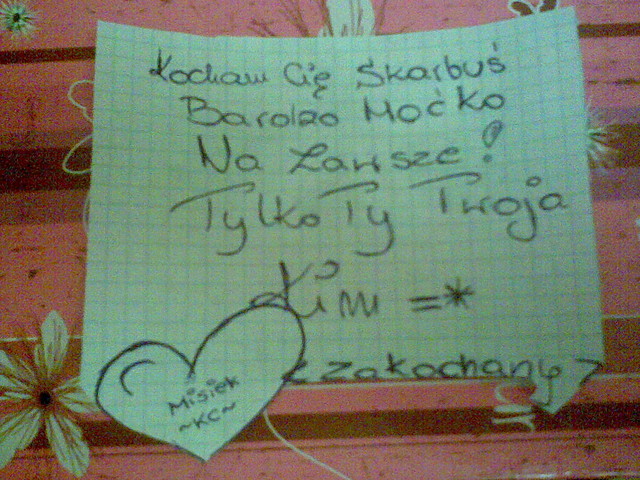 Kocham Cię Skarbuś
Bardzo Moćko
Na Zawsze!
Tylko Ty Twoja
Kim =*
<zakochany>
Misiek
~KC~